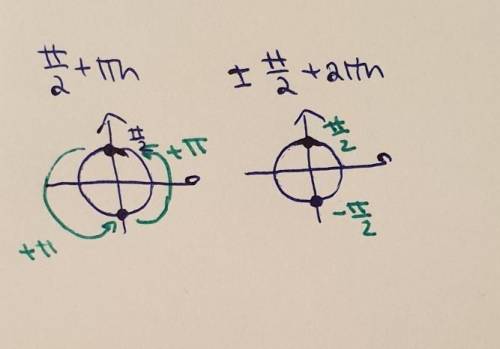 π/2 + πn
± π/2 + 2πn
π/2
+π
+π
π/2
-π/2